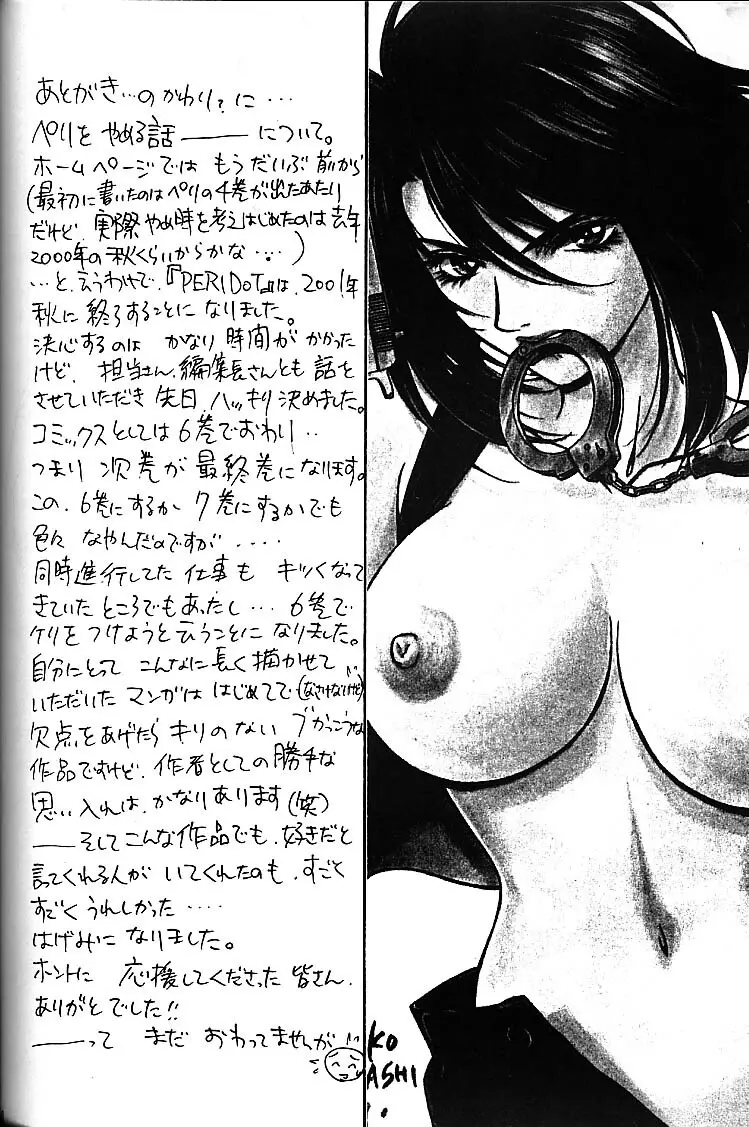 あとがき…のかわり?に…
ペリを やめる話 ――― について。
ホームページでは もうだいぶ前から
(最初に書いたのはペリの4巻が出たあたり
だけど、実際やめ時を考えはじめたのは去年
2000年の秋くらいからかな…)
…と、言うわけで、『PERIDoT』は、2001年
秋に 終了することに なりました。
決心するのは かなり 時間が かかった
けど、担当さん、編集長さんとも 話を
させていただき 先日 ハッキリ決めました。
コミックスとしては6巻でおわり…
つまり 次巻が最終巻になります。
この、6巻にするか 7巻にするかでも
色々 なやんだのですが ....
同時進行してた 仕事も キツくなって
きていた ところでもあったし… 6巻で
ケリを つけようと言うことに なりました。
自分にとって こんなに長く描かせて
いただいた マンガは はじめてで(なさけないけど)
欠点をあげたら キリのない ブかっこうな
作品ですけど、作者としての勝手な
思い入れは、かなりあります(笑)
――そしてこんな作品でも、好きだと
言ってくれる人が いてくれたのも、すごく
すごく うれしかった ....
はげみに なりました。
ホントに 応援してくださった 皆さん、
ありがと でした!!
――って まだ おわってませんが
KO
ASHI